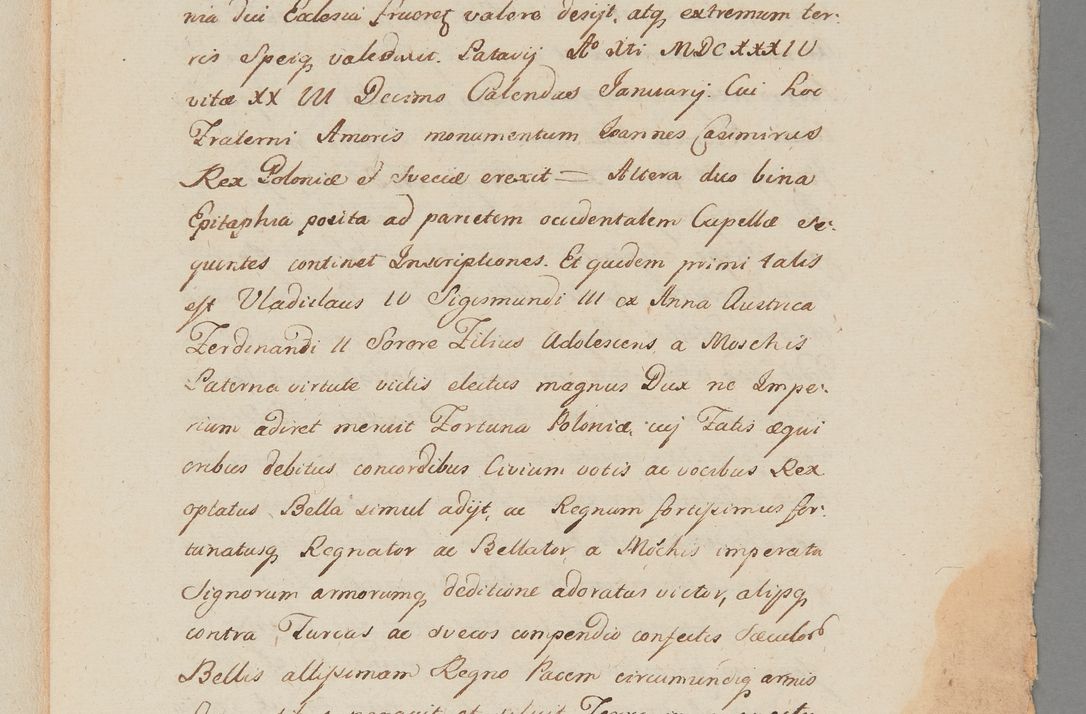 nia dui Ecclesia frueret valere desijt, atq extremum ter:
ris Speiq valedixit. Patavij Aº Xti MDCXXXIV
vitæ XX III Decimo Calendas Januarij. Cui hoc
Fraterni Amoris monumentum Joannes Casimirus
Rex Poloniæ et Sveciæ erexit = Altera duo bina
Epitaphia posita ad parietem occidentalem Capellæ se:
quentes continet Inscriptiones. Et quidem primi talis
est Vladislaus IV Sigismundi III ex Anna Austrica
Ferdinandi II Sorore Filius Adolescens, a Moschis
Paterna virtute victis electus magnus Dux ne Impe:
rium adiret meruit Fortuna Poloniæ, cuj Fatis æqui
oribus debitus concordibus Civium votis ac vocibus Rex
optatus Bella simul adijt, ac Regnum fortissimus for:
tunatusq Regnator ac Bellator, a Mochis imperatu
Signorum armorumq deditione adoratus victor, alijsq
contra Turcas ac Svecos compendio confectis Sæculor
Bellis altissimam Regno Pacem circumundiq armis